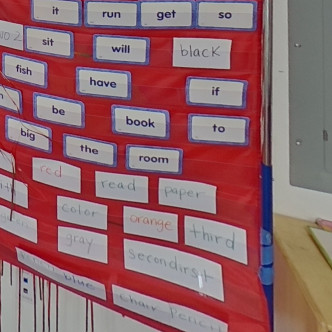 it run get so
sit will black
fish have if
be book to
big the room
red read paper
color orange third
gray secondirst
blue
chair pencil